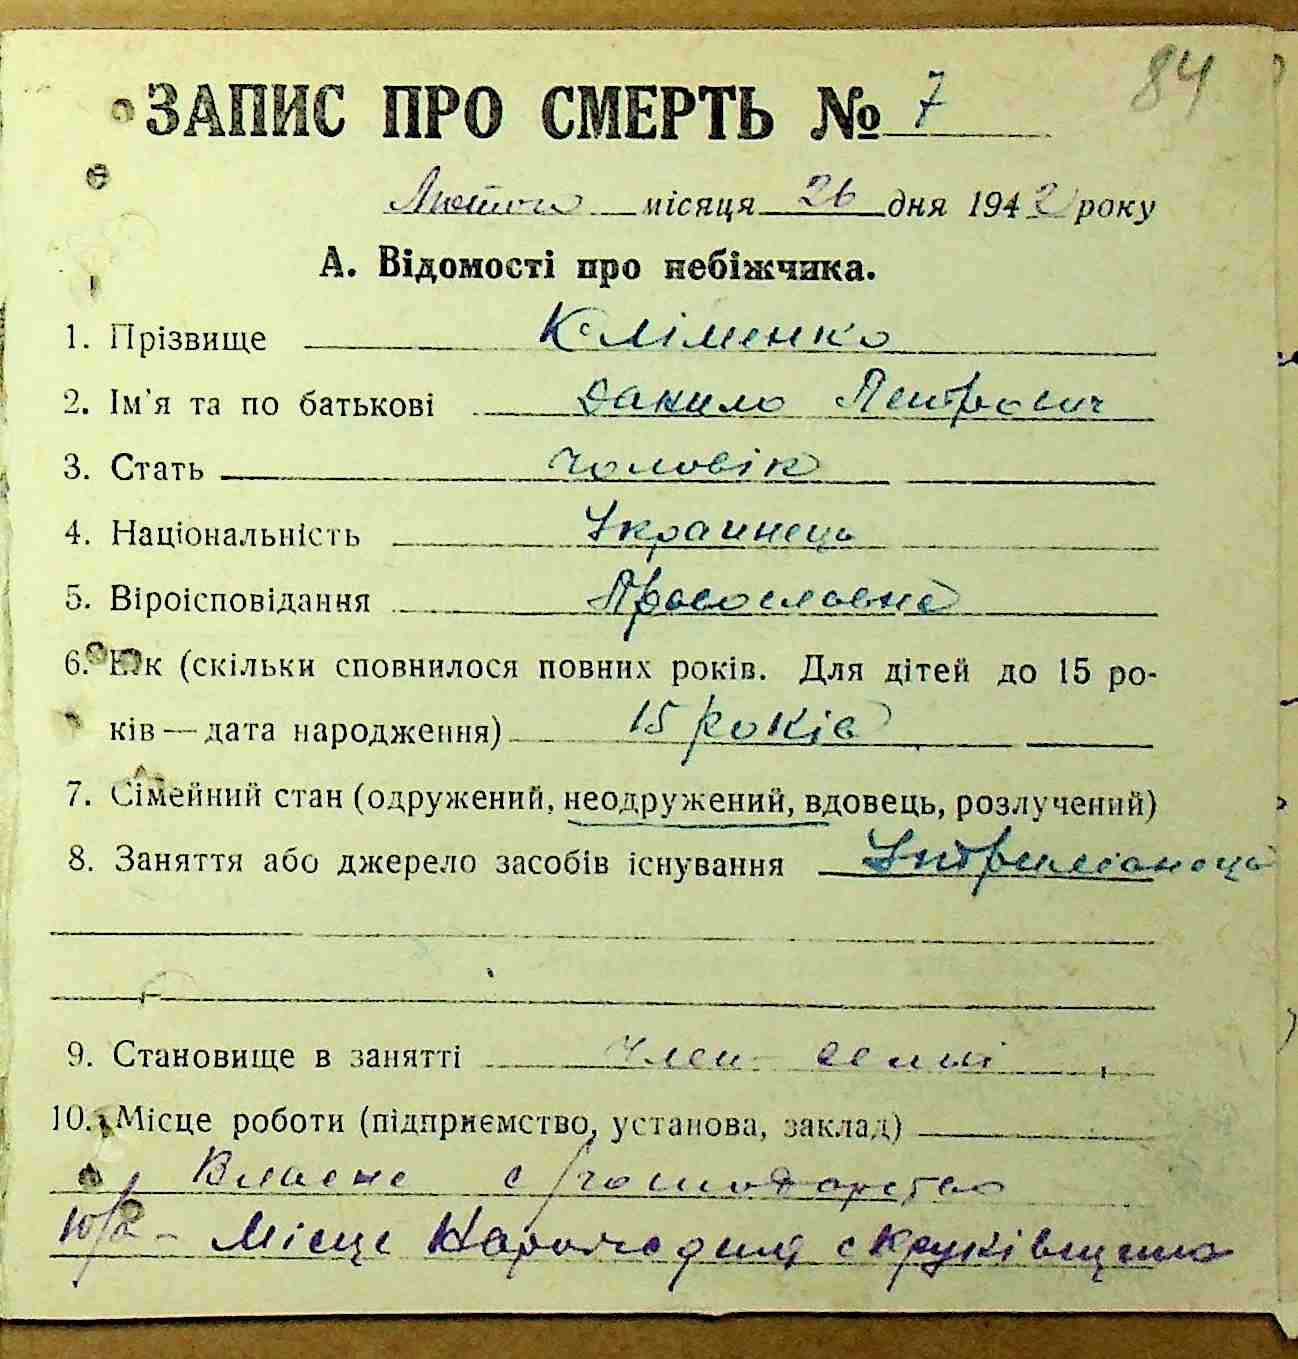 84
ЗАПИС ПРО СМЕРТЬ № 7
Лютого місяця 26 дня 1942 року
А. Відомості про небіжчика.
1. Прізвище Кліменко
2. Ім'я та по батькові Данило Пентрович
3. Стать Чоловік
4. Національність Украинець
5. Віроісповідання Православна
6. Вік (скільки сповнилося повних років. Для дітей до 15 ро-
ків — дата народження) 15 років
7. Сімейний стан (одружений, неодружений, вдовець, розлучений)
8. Заняття або джерело засобів існування
9. Становище в занятті Член семьі
10. Місце роботи (підприємство, установа, заклад)
Власне с/господарство
10/а - Місце Народження с Круківщина